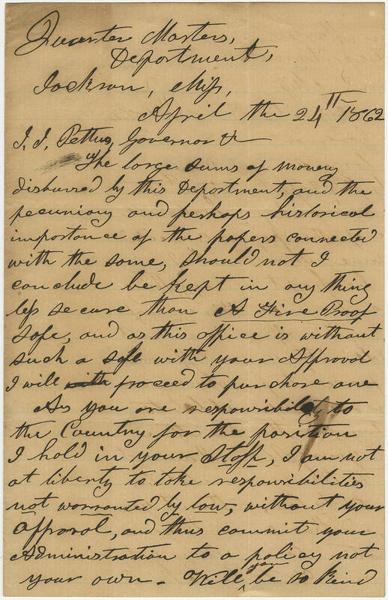 Quarter Masters,
Department,
Jackson, Miss,
April the 24th 1862
J. J. Pettus, Governor &c
The large sums of money
disbursed by this Department, and the
pecuniary and perhaps historical
importance of the papers connected
with the same, should not I
conclude be kept in any thing
less secure than A Fire Proof
safe, and as this office is without
such a safe with your Approval
I will proceed to purchase one
As you are responsibility to
the Country for the position
I hold in your Staff, I am not
at liberty to take responsibilities
not warranted by law, without your
approval, and thus commit your
Administration to a policy not
your own. Will you be so kind